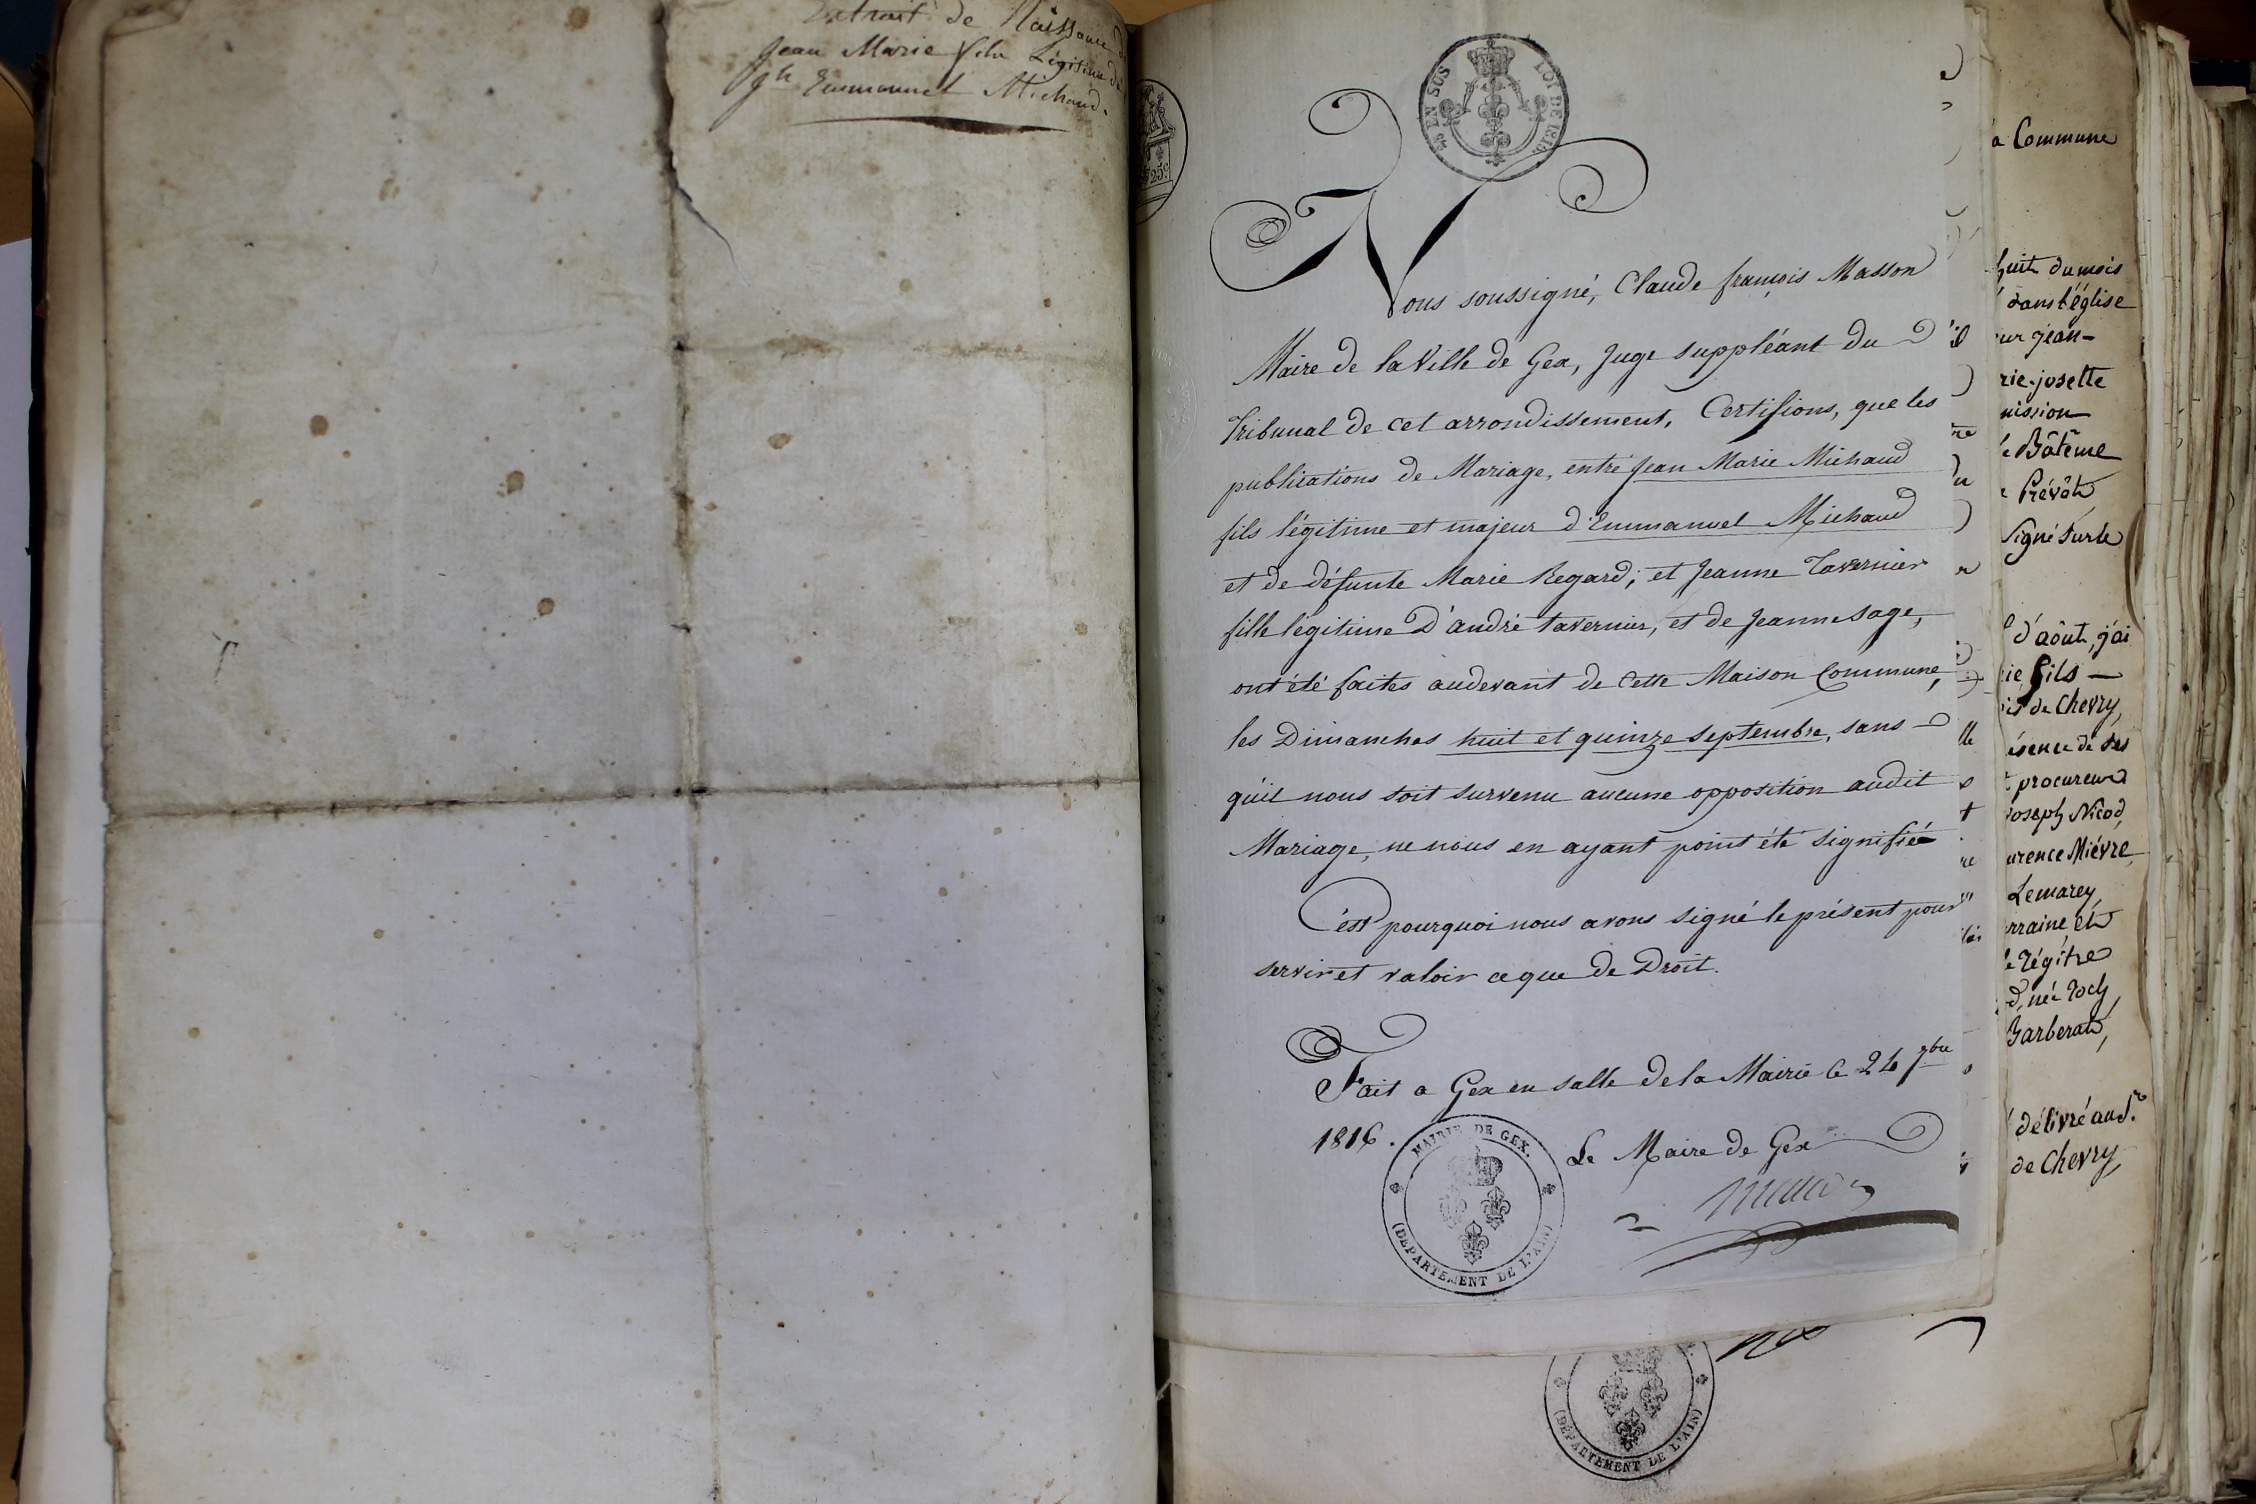 Extrait de Naissance de
Jean Marie fils Légitime de
Jh Emmanuel Michaud.
25c
EN SUS
LOI DE 1816
Nous soussigné, Claude françois Masson
Maire de la Ville de Gex, Juge suppléant du
Tribunal de cet arrondissement, Certifions, que les
publications de Mariage, entre Jean Marie Michaud
fils légitime et majeur d'Emmanuel Michaud
et de défunte Marie Regard; et Jeanne Tavernier
fille légitime D'andré tavernier, et de Jeanne sage,
ont été faites audevant de Cette Maison Commune,
les Dimanches huit et quinze septembre, sans
qu'il nous soit survenu aucune opposition audit
Mariage, ne nous en ayant point été signifié
C'est pourquoi nous avons signé le présent pour
servir et valoir ce que de Droit.
Fait a Gex en salle de la Mairie le 24 7bre
1816.
Le Maire de Gex
MAIRIE DE GEX.
(DÉPARTEMENT DE L'AIN)
a Commune
huit du mois
dans l'église
jean-
rie-josette
mission
Bâtême
Prévôt
Signé sur le
d'août, j'ai
fils
de Chevry,
ésence de ses
procureur
joseph Nicod,
urence Mièvre,
Lemarey,
rraine, et
Régître
née Roch,
Barberat,
délivré au Sr.
de Chevry,
(DÉPARTEMENT DE L'AIN)